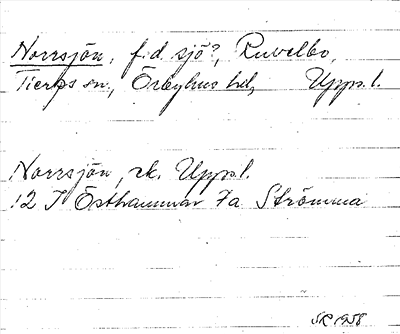 Norrsjön, f.d. sjö?, Ruvelbo,
Tierps sn., Örbyhus hd, Uppl.
Norrsjön, rk. Uppl.
12 I Östhammar 7a Strömma
SR 1958